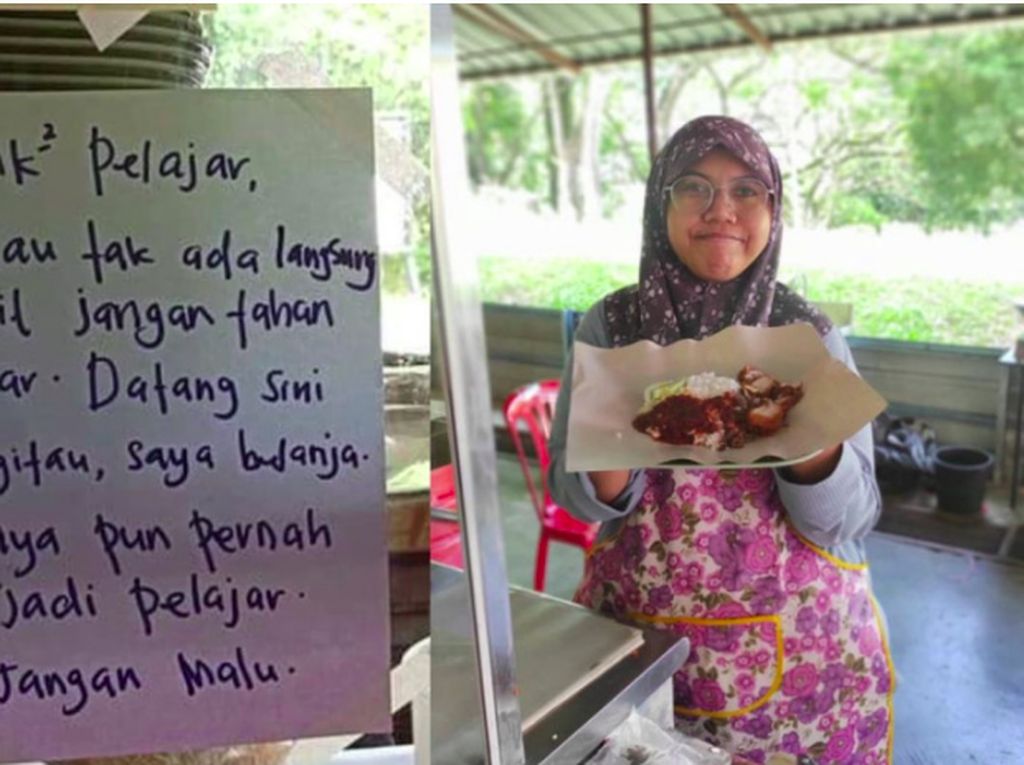 k² Pelajar,
au tak ada langsung
il jangan tahan
ar. Datang sini
gitau, saya belanja.
ya pun pernah
jadi pelajar.
Jangan Malu.